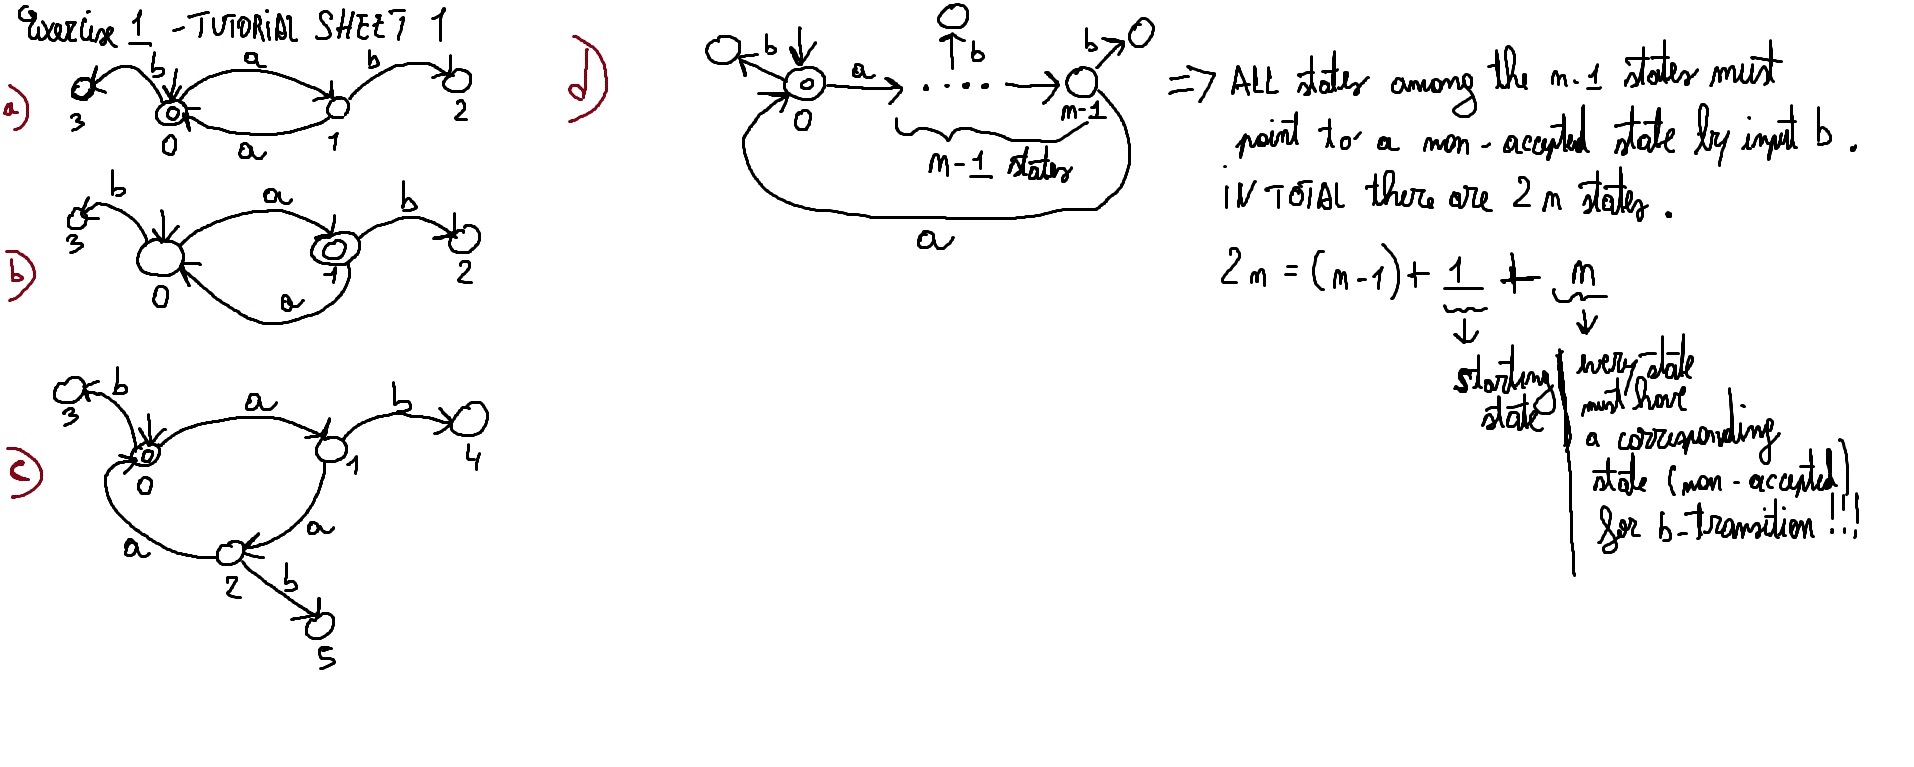 Exercise 1 - TUTORIAL SHEET 1
a)
b
a
b
3
0
a
1
2
b)
b
a
b
3
0
1
2
a
c)
b
a
b
3
0
1
4
a
a
2
b
5
d)
b
a
b
b
0
n-1
n-1 states
a
=> ALL states among the n-1 states must
point to a non-accepted state by input b.
IN TOTAL there are 2n states.
2n = (n-1) + 1 + n
starting
state
every state
must have
a corresponding
state (non-accepted)
for b-transition !!!